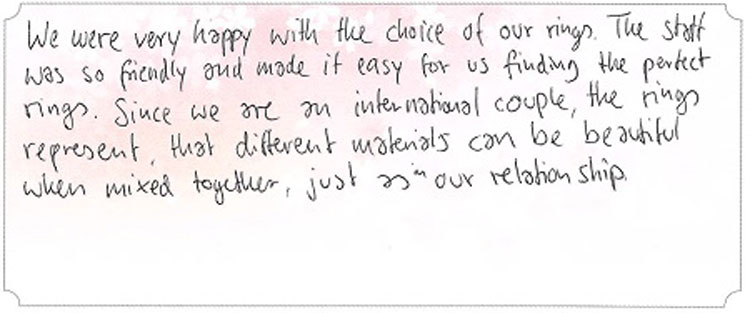 We were very happy with the choice of our rings. The staff
was so friendly and made it easy for us finding the perfect
rings. Since we are an international couple, the rings
represent, that different materials can be beautiful
when mixed together, just as in our relationship.